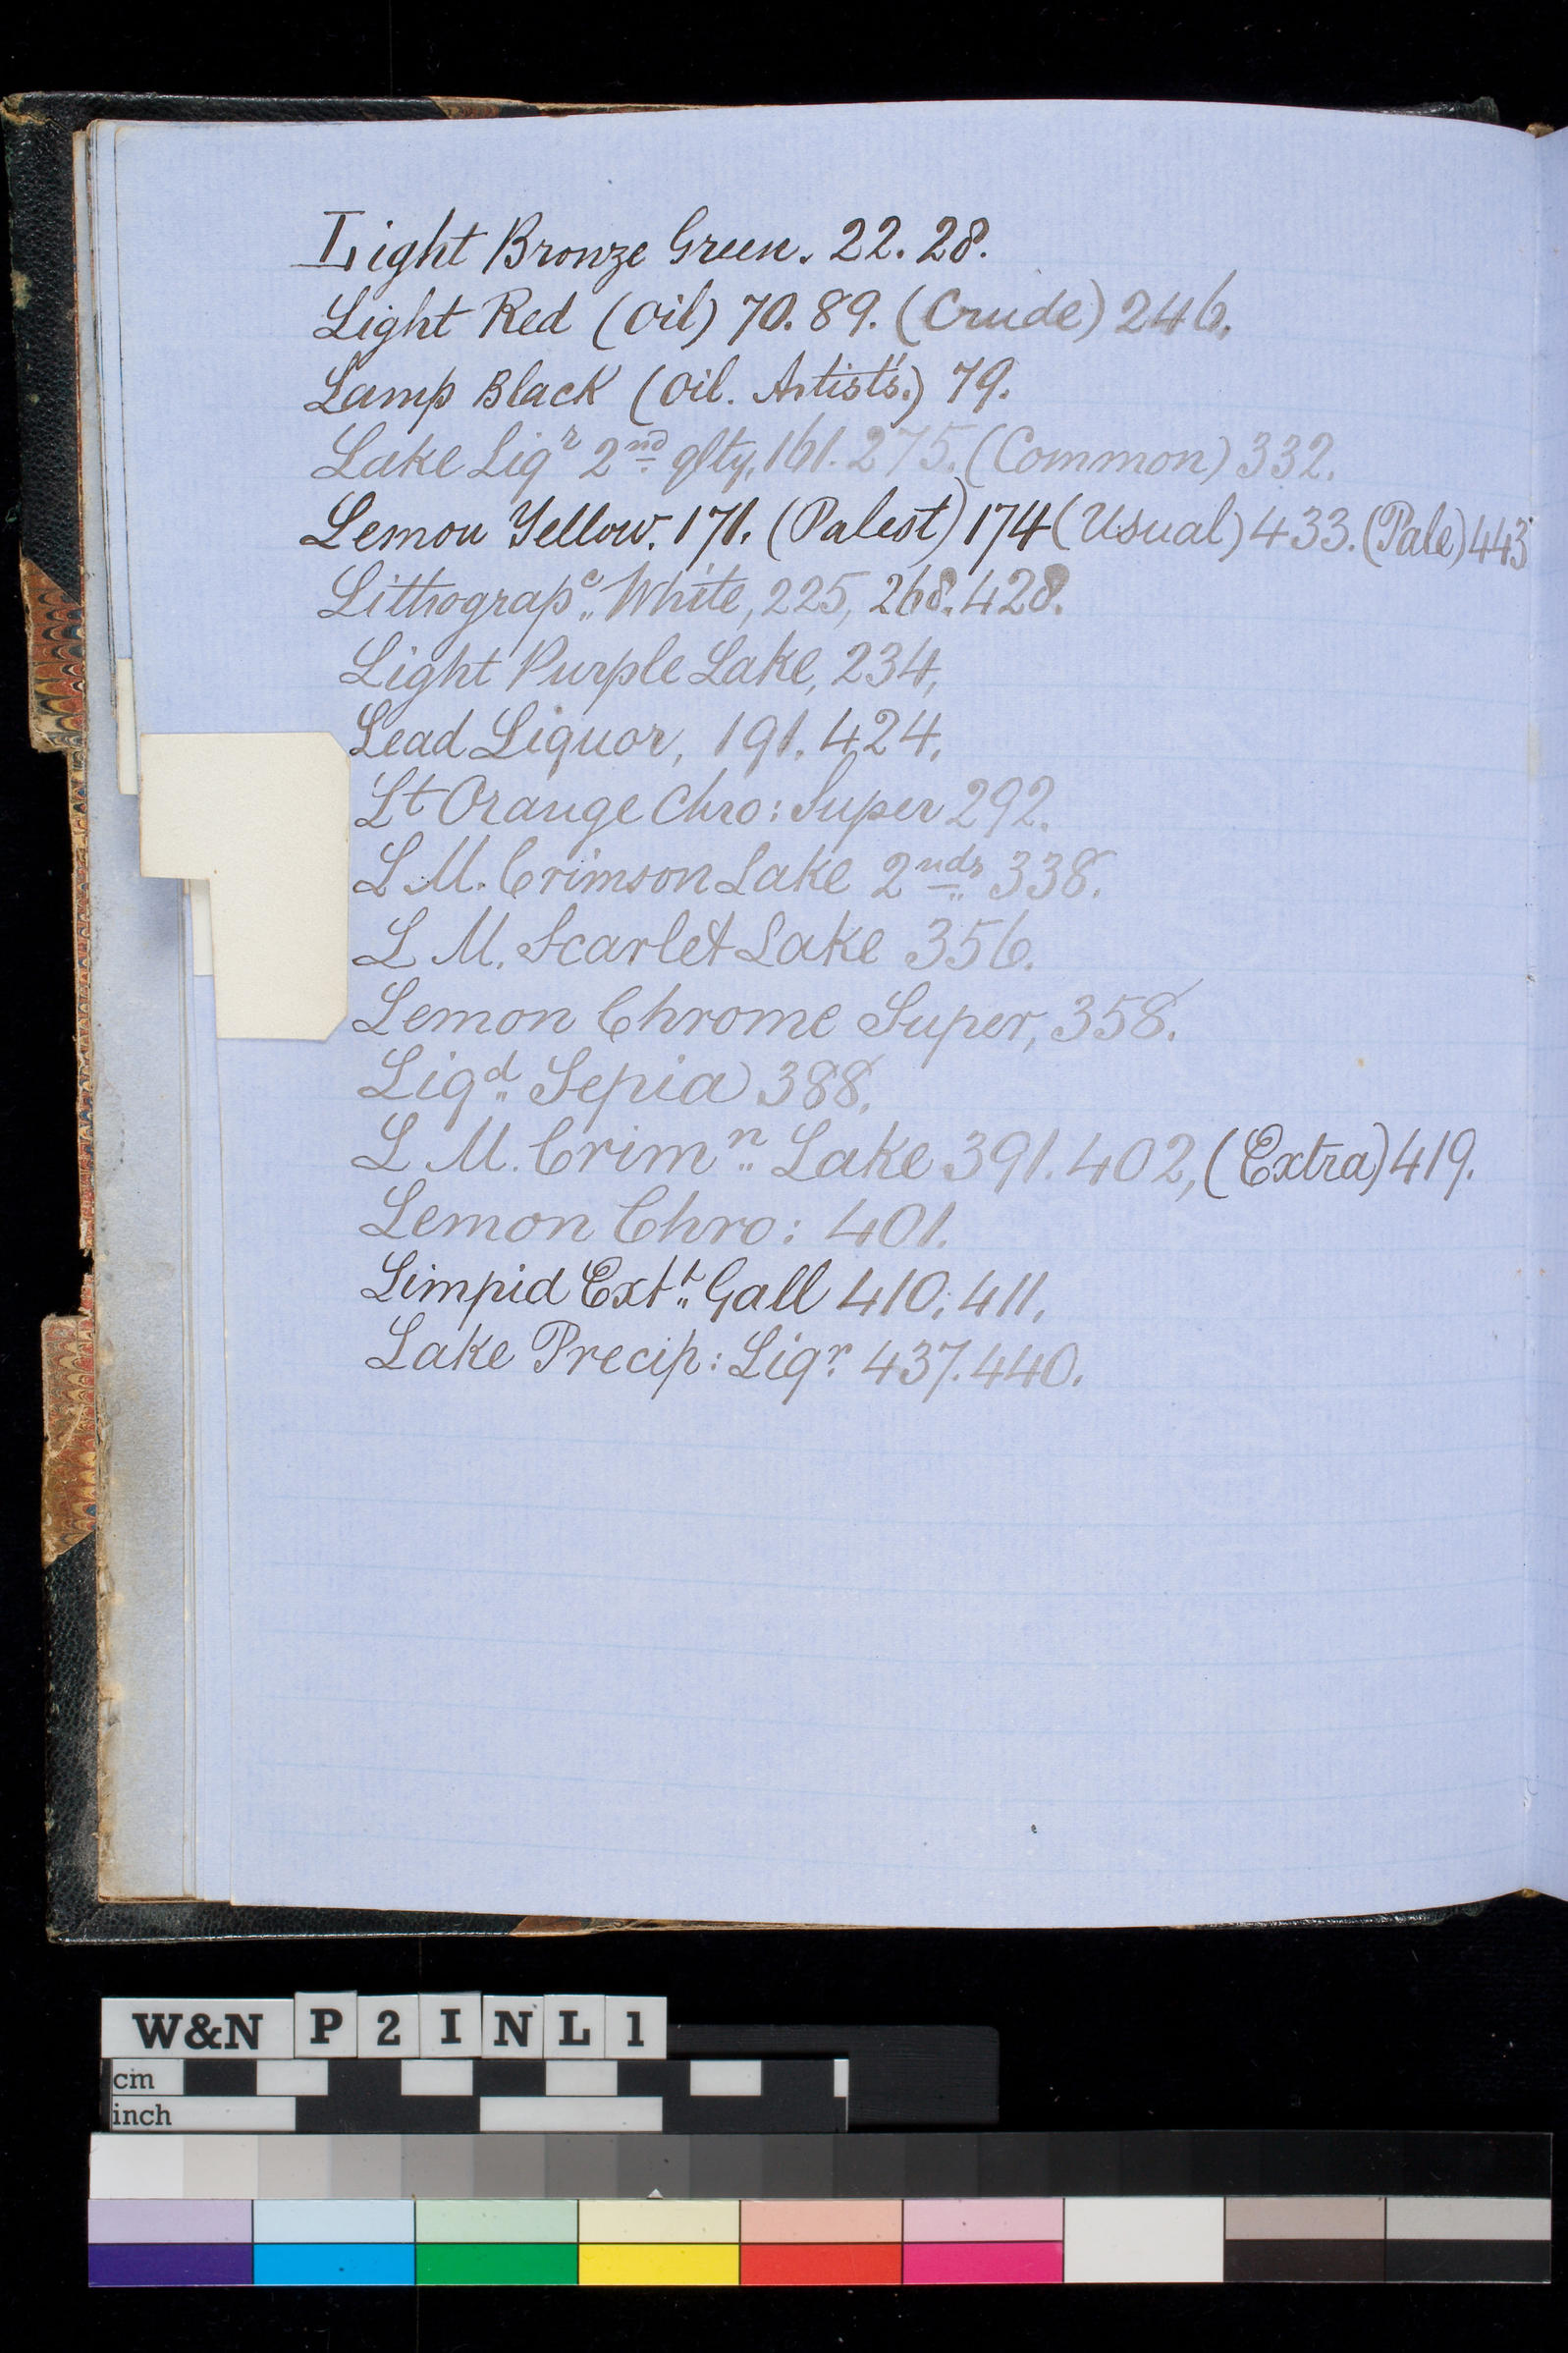 Light Bronze Green. 22. 28.
Light Red (Oil) 70. 89. (Crude) 246.
Lamp Black (Oil. Artist's.) 79.
Lake Liqr 2nd qlty, 161. 275. (Common) 332.
Lemon Yellow. 171. (Palest) 174 (Usual) 433. (Pale) 443
Lithograpc White, 225, 268. 428.
Light Purple Lake, 234,
Lead Liquor, 191. 424.
Lt Orange Chro: Super 292.
L M. Crimson Lake 2nds 338.
L M. Scarlet Lake 356.
Lemon Chrome Super, 358.
Liqd Sepia 388.
L M. Crimn Lake 391. 402, (Extra) 419.
Lemon Chro: 401.
Limpid Extt Gall 410. 411.
Lake Precip: Liqr 437. 440.
W&N P2INL1
cm
inch